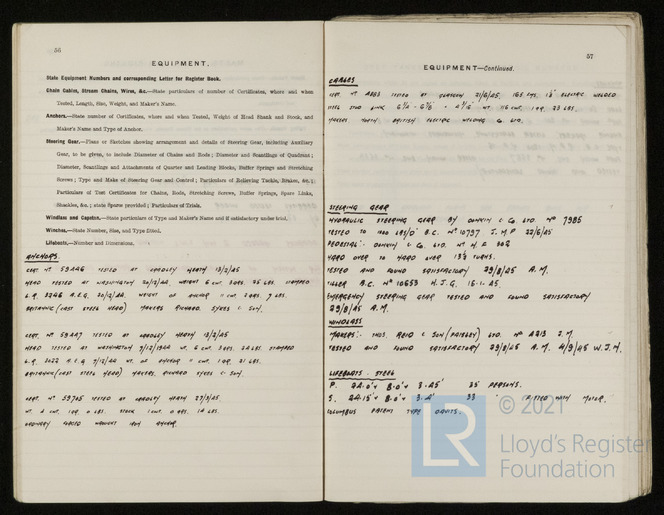 56
EQUIPMENT.
State Equipment Numbers and corresponding Letter for Register Book.
Chain Cables, Stream Chains, Wires, &c.—State particulars of number of Certificates, where and when
Tested, Length, Size, Weight, and Maker's Name.
Anchors.—State number of Certificates, where and when Tested, Weight of Head Shank and Stock, and
Maker's Name and Type of Anchor.
Steering Gear.—Plans or Sketches showing arrangement and details of Steering Gear, including Auxiliary
Gear, to be given, to include Diameter of Chains and Rods; Diameter and Scantlings of Quadrant;
Diameter, Scantlings and Attachments of Quarter and Middle Blocks, Buffer Springs and Stretching
Screws; Type and Make of Steering Gear and Control; Particulars of Relieving Tackle, Brakes, &c.;
Particulars of Test Certificates for Chains, Rods, Stretching Screws, Buffer Springs, Spare Links,
Shackles, &c.; state Spares provided; Particulars of Trials.
Windlass and Capstan.—State particulars of Type and Maker's Name and if satisfactory under trial.
Winches.—State Number, Size, and Type fitted.
Lifeboats.—Number and Dimensions.
ANCHORS.
CERT. Nº 59446 TESTED AT CRADLEY HEATH 13/2/45
HEAD TESTED AT WASHINGTON 20/12/44 WEIGHT 6 CWT. 3 QRS. 25 LBS. STAMPED
L.R. 3246 A.E.G. 20/12/44. WEIGHT OF ANCHOR CWT. 2 QRS. 9 LBS.
BRITANNIC (CAST STEEL HEAD) MAKERS RICHARD SYKES & SON.
CERT. Nº 59447 TESTED AT CRADLEY HEATH 13/2/45
HEAD TESTED AT WASHINGTON 7/12/1944 WT. 6 CWT. 3 QRS. 24 LBS. STAMPED
L.R. 3022 A.E.G. 7/12/44 WT. OF ANCHOR CWT. 1 QR. 21 LBS.
BRITANNIC (CAST STEEL HEAD) MAKERS, RICHARD SYKES & SON.
CERT. Nº 59705 TESTED AT CRADLEY HEATH 27/3/45
WT. 4 CWT. 1 QR. 0 LBS. STOCK 1 CWT. 0 QRS. 14 LBS.
ORDINARY FORGED WROUGHT IRON ANCHOR.
57
EQUIPMENT—Continued.
CABLES
CERT. Nº TESTED AT GLASGOW 21/6/45. 165 FMS. ELECTRIC WELDED
STEEL STUD LINK WT. CWT 1 QR. 23 LBS.
MAKERS BRITISH ELECTRIC WELDING Co LTD.
STEERING GEAR
HYDRAULIC STEERING GEAR BY DONKIN & Co. LTD. Nº 7985
TESTED TO 1400 LBS/□" B.C. Nº 10797 J.M.P 22/6/45
PEDESTAL:- DONKIN & Co. LTD. Nº H.P. 302
HARD OVER TO HARD OVER 13½ TURNS.
TESTED AND FOUND SATISFACTORY 29/8/45 A.M.
TILLER B.C. Nº 10653 H.J.G. 16.1.45.
EMERGENCY STEERING GEAR TESTED AND FOUND SATISFACTORY
29/8/45 A.M.
WINDLASS
MAKERS:- THOS. REID & SON (PAISLEY) LTD. Nº A213 J.M
TESTED AND FOUND SATISFACTORY 29/8/45 A.M. 4/9/45 W.J.M.
LIFEBOATS - STEEL
P. 24.0 × 8.0 × 3.25' 35 PERSONS.
S. 24.15 × 8.0 × 3.2' 33 " FITTED WITH MOTOR.
COLUMBUS PATENT TYPE DAVITS.
LR
© 2021
Lloyd's Register
Foundation